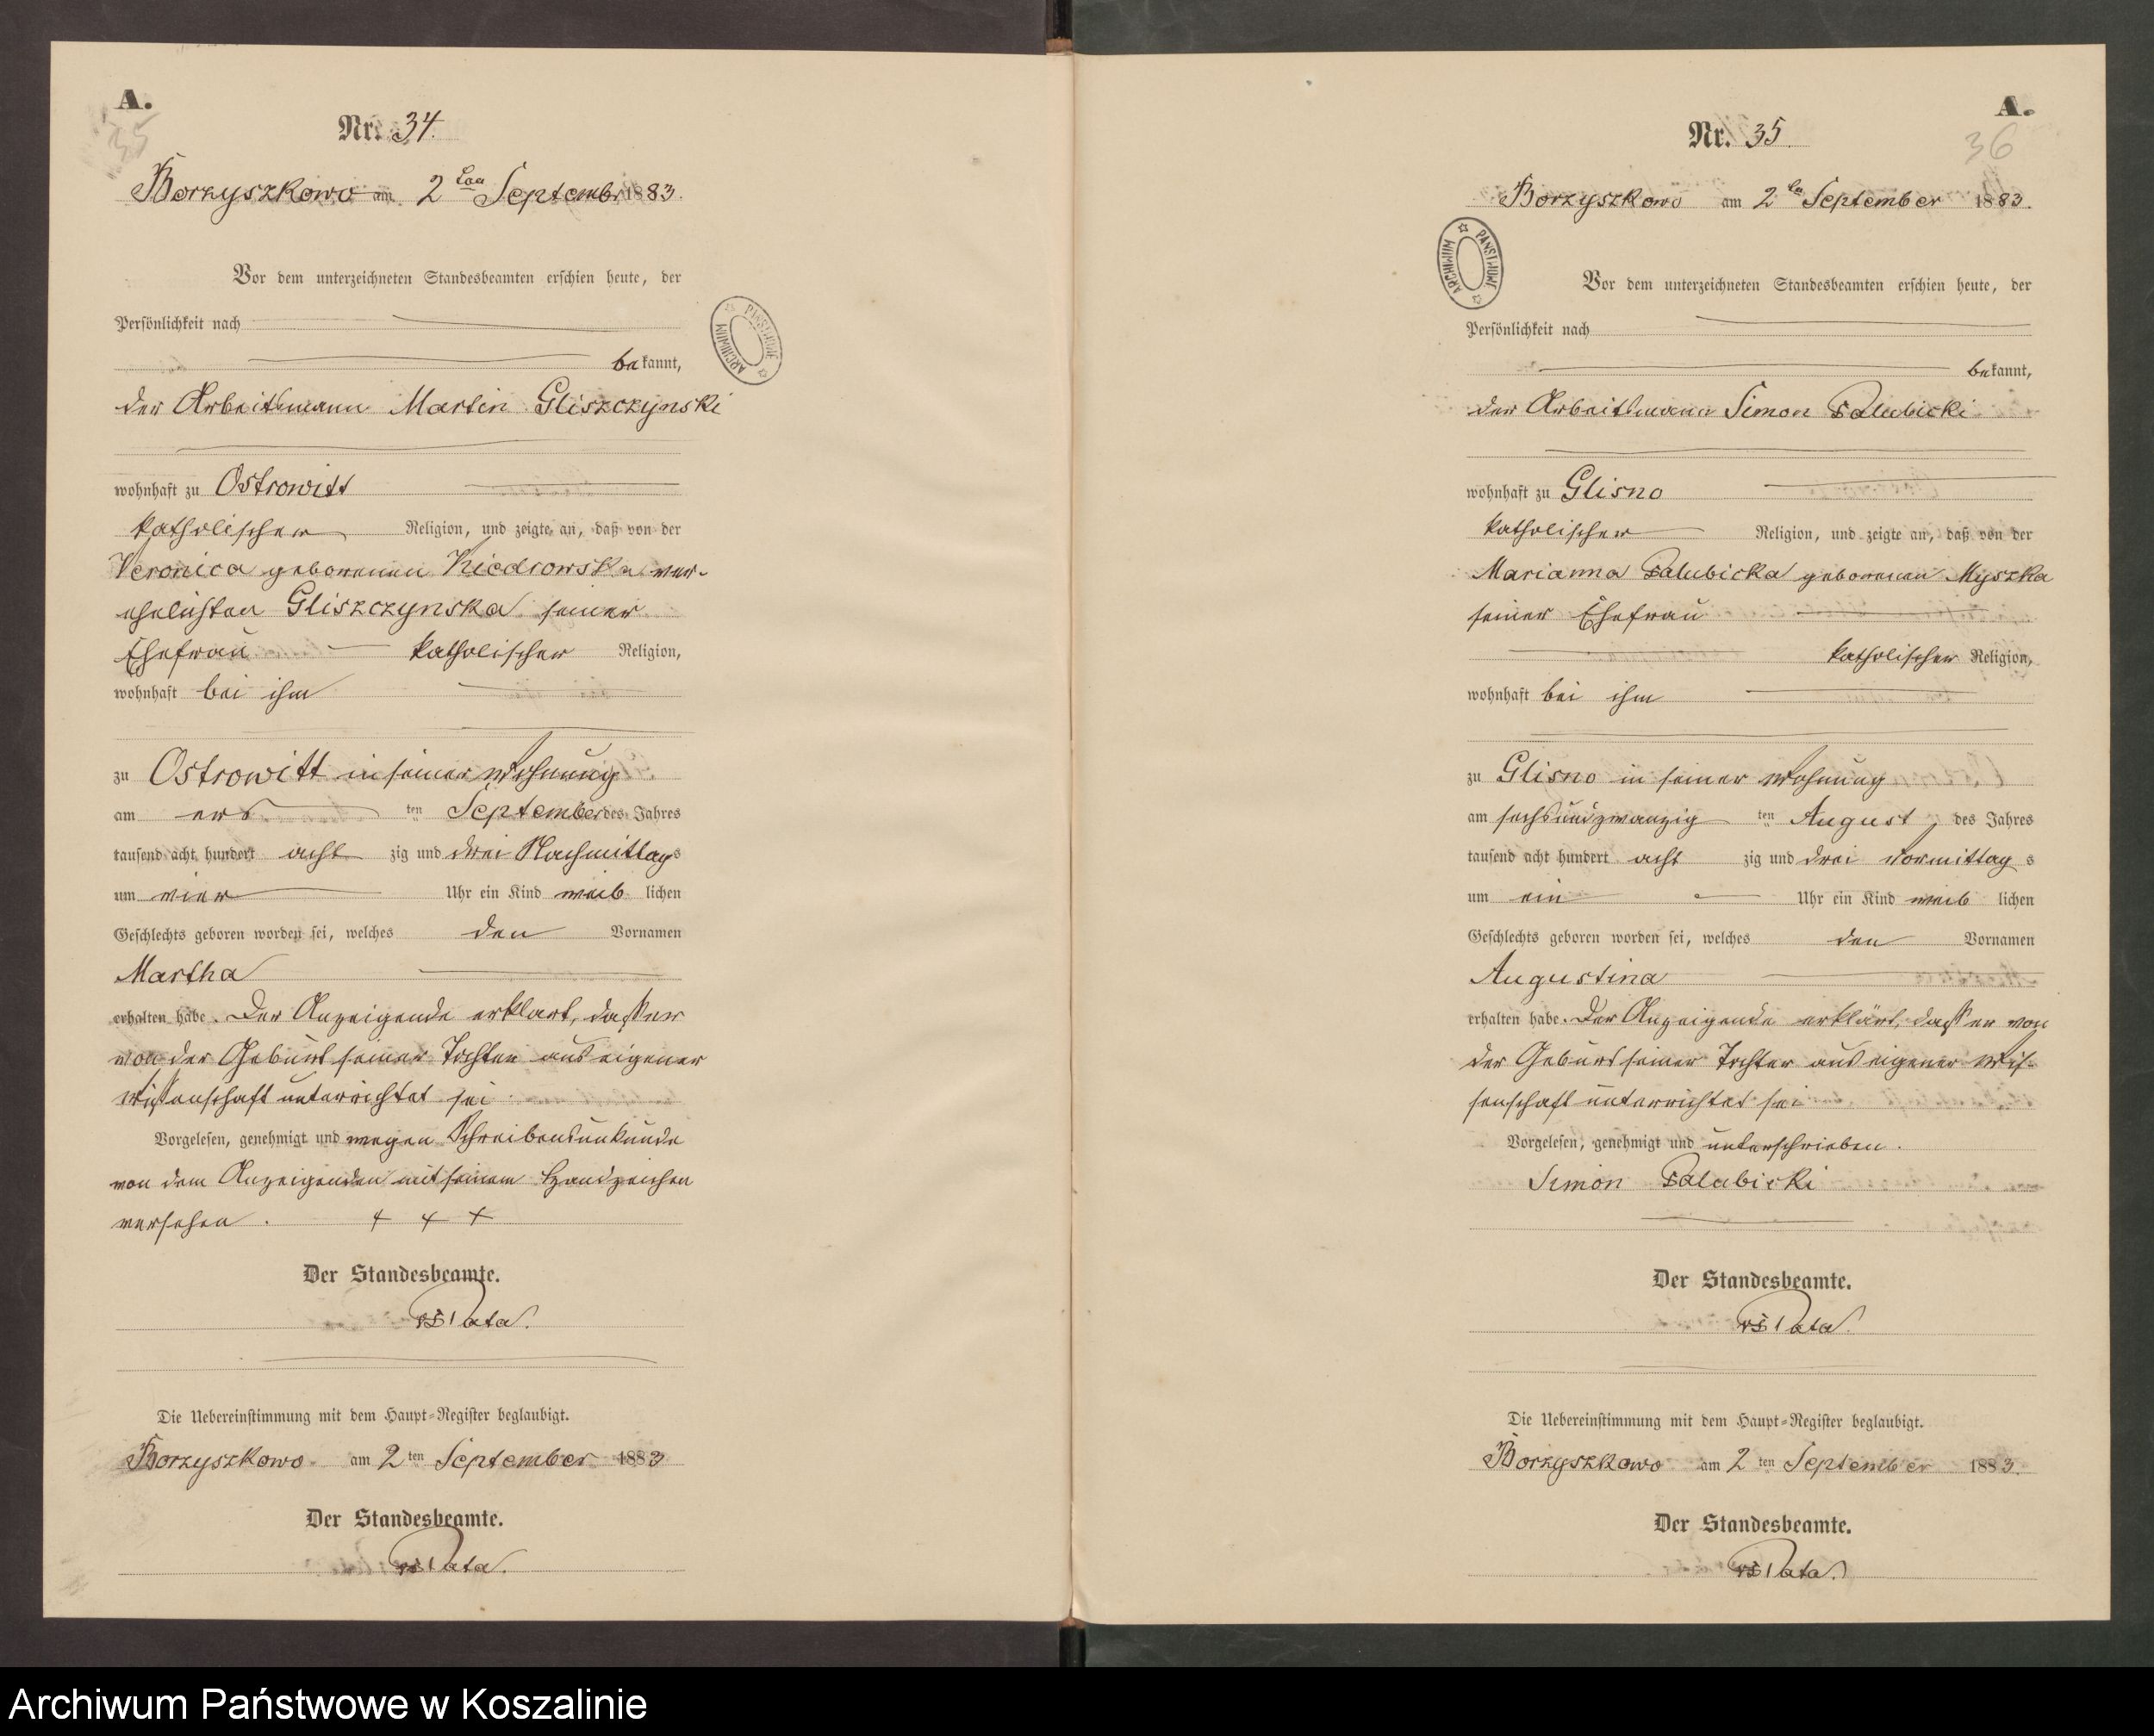 A.
35
Nr. 34.
Borzyszkowo am 2ten September 1883.
Vor dem unterzeichneten Standesbeamten erschien heute, der
Persönlichkeit nach
bekannt,
der Arbeitsmann Martin Gliszczynski
wohnhaft zu Ostrowitt
katholischer Religion, und zeigte an, daß von der
Veronica geborenen Kiedrowska ver-
ehelichten Gliszczynska seiner
Ehefrau katholischer Religion,
wohnhaft bei ihm
zu Ostrowitt in seiner Wohnung
am ers ten September des Jahres
tausend acht hundert acht zig und drei Nachmittags
um vier Uhr ein Kind weib lichen
Geschlechts geboren worden sei, welches den Vornamen
Martha
erhalten habe. Der Anzeigende erklärt, daß er
von der Geburt seiner Tochter aus eigener
Wissenschaft unterrichtet sei.
Vorgelesen, genehmigt und wegen Schreibensunkunde
von dem Anzeigenden mit seinem Handzeichen
versehen. + + +
Der Standesbeamte.
Pata.
Die Uebereinstimmung mit dem Haupt-Register beglaubigt.
Borzyszkowo am 2 ten September 1883
Der Standesbeamte.
Pata.
A.
36
Nr. 35.
Borzyszkowo am 2ten September 1883.
ARCHIWUM PAŃSTWOWE
Vor dem unterzeichneten Standesbeamten erschien heute, der
Persönlichkeit nach
bekannt,
der Arbeitsmann Simon Palubicki
wohnhaft zu Glisno
katholischer Religion, und zeigte an, daß von der
Marianna Palubicka geborenen Myszka
seiner Ehefrau
katholischer Religion,
wohnhaft bei ihm
zu Glisno in seiner Wohnung
am sechsundzwanzig ten August des Jahres
tausend acht hundert acht zig und drei Vormittag s
um ein Uhr ein Kind weib lichen
Geschlechts geboren worden sei, welches den Vornamen
Augustina
erhalten habe. Der Anzeigende erklärt, daß er von
der Geburt seiner Tochter aus eigener Wis-
senschaft unterrichtet sei
Vorgelesen, genehmigt und unterschrieben.
Simon Palubicki
Der Standesbeamte.
Pata.
Die Uebereinstimmung mit dem Haupt-Register beglaubigt.
Borzyszkowo am 2 ten September 1883.
Der Standesbeamte.
Pata.
Archiwum Państwowe w Koszalinie